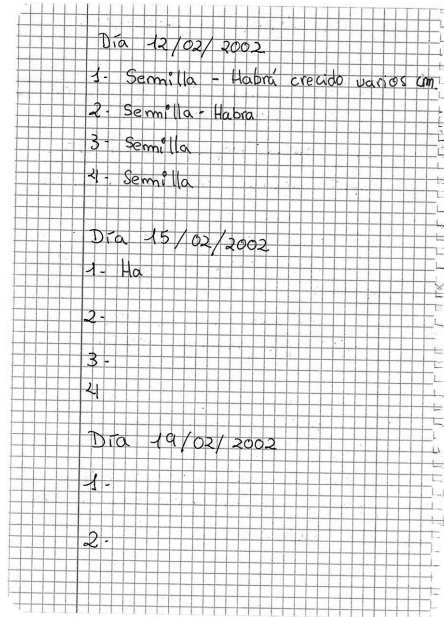 Día 12/02/2002
1- Semilla - Habrá crecido varios cm.
2- Semilla - Habra
3- Semilla
4- Semilla
Día 15/02/2002
1- Ha
2-
3-
4
Día 19/02/2002
1-
2-